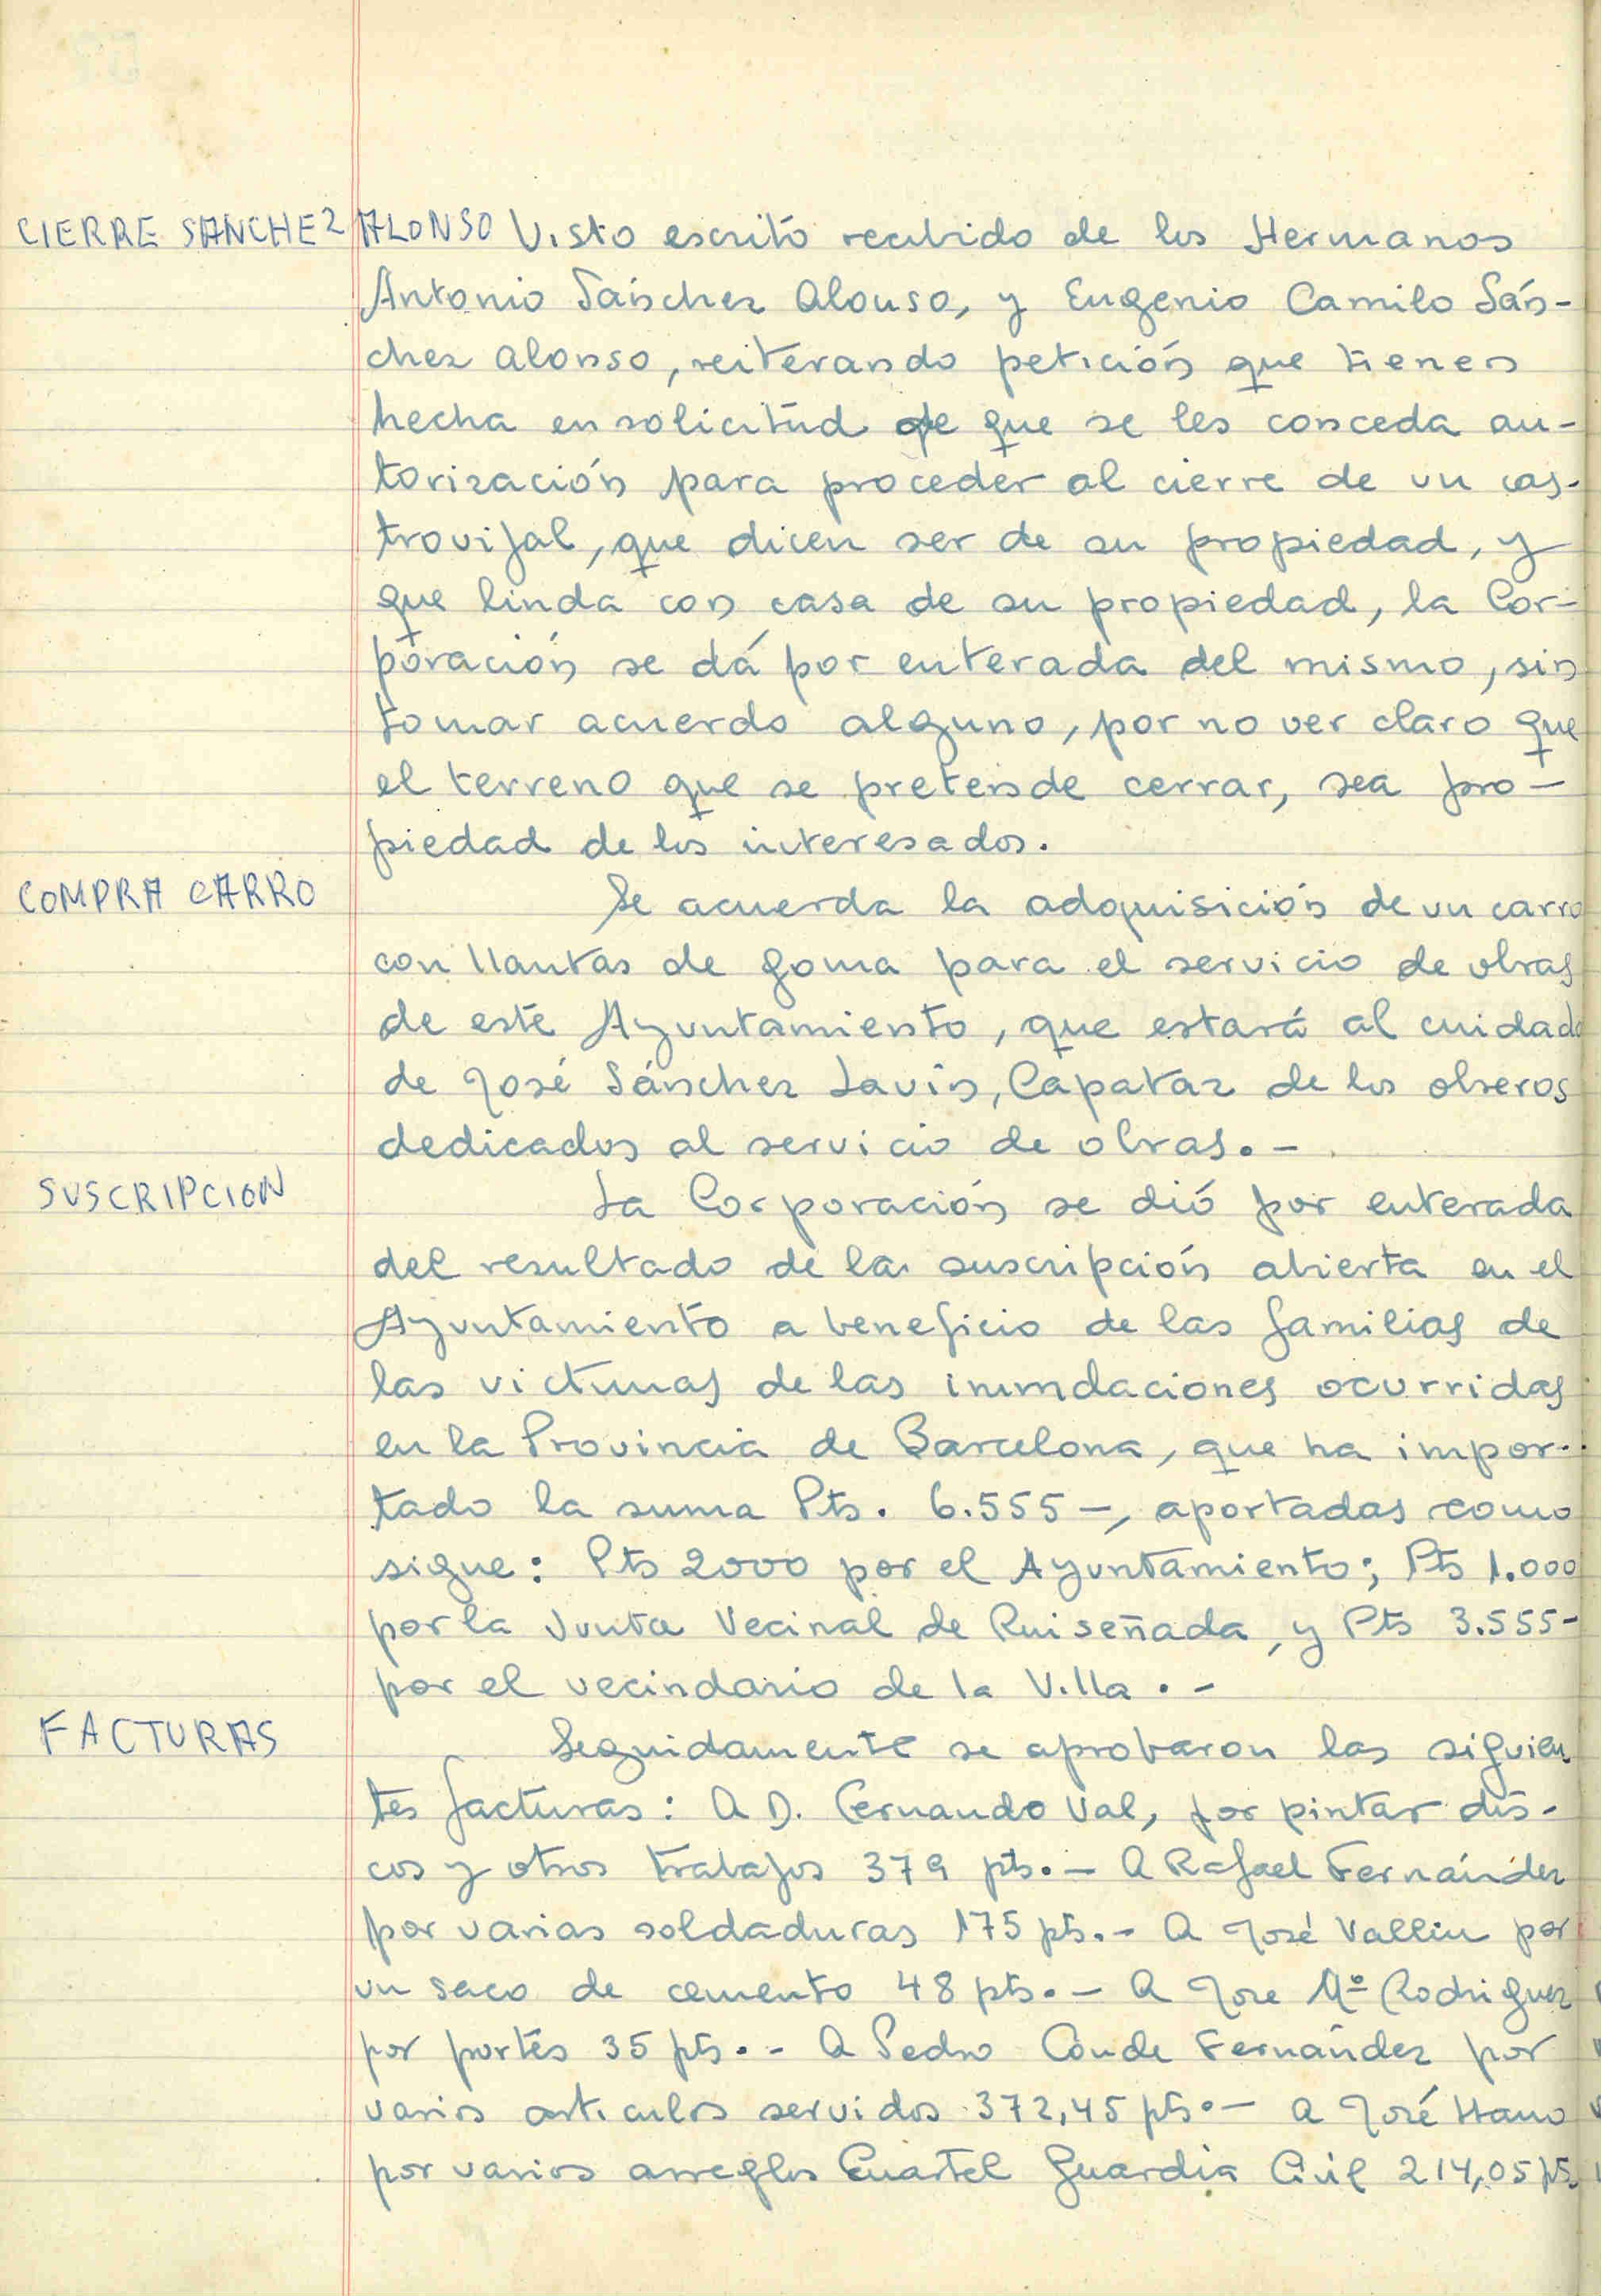 CIERRE SANCHEZ ALONSO Visto escrito recibido de los Hermanos
Antonio Sánchez Alonso, y Eugenio Camilo Sán-
chez Alonso, reiterando petición que tienen
hecha en solicitud de que se les conceda au-
torización para proceder al cierre de un cas-
trovijal, que dicen ser de su propiedad, y
que linda con casa de su propiedad, la Cor-
poración se dá por enterada del mismo, sin
tomar acuerdo alguno, por no ver claro que
el terreno que se pretende cerrar, sea pro-
piedad de los interesados.
COMPRA CARRO Se acuerda la adquisición de un carro
con llantas de goma para el servicio de obras
de este Ayuntamiento, que estará al cuidado
de José Sánchez Lavin, Capataz de los obreros
dedicados al servicio de obras.-
SUSCRIPCION La Corporación se dió por enterada
del resultado de la suscripción abierta en el
Ayuntamiento a beneficio de las familias de
las victimas de las inundaciones ocurridas
en la Provincia de Barcelona, que ha impor-
tado la suma Pts. 6.555-, aportadas como
sigue: Pts 2000 por el Ayuntamiento; Pts 1.000
por la Junta Vecinal de Ruiseñada, y Pts 3.555-
por el vecindario de la Villa.-
FACTURAS Seguidamente se aprobaron las siguien
tes facturas: A D. Fernando Val, por pintar dis-
cos y otros trabajos 379 pts.- A Rafael Fernández
por varias soldaduras 175 pts.- A José Vallin por
un saco de cemento 48 pts.- A Jose Mª Rodriguez
por portes 35 pts.- A Pedro Conde Fernández por
varios articulos servidos 372,45 pts.- A José Hano
por varios arreglos Cuartel Guardia Civil 214,05 pts.